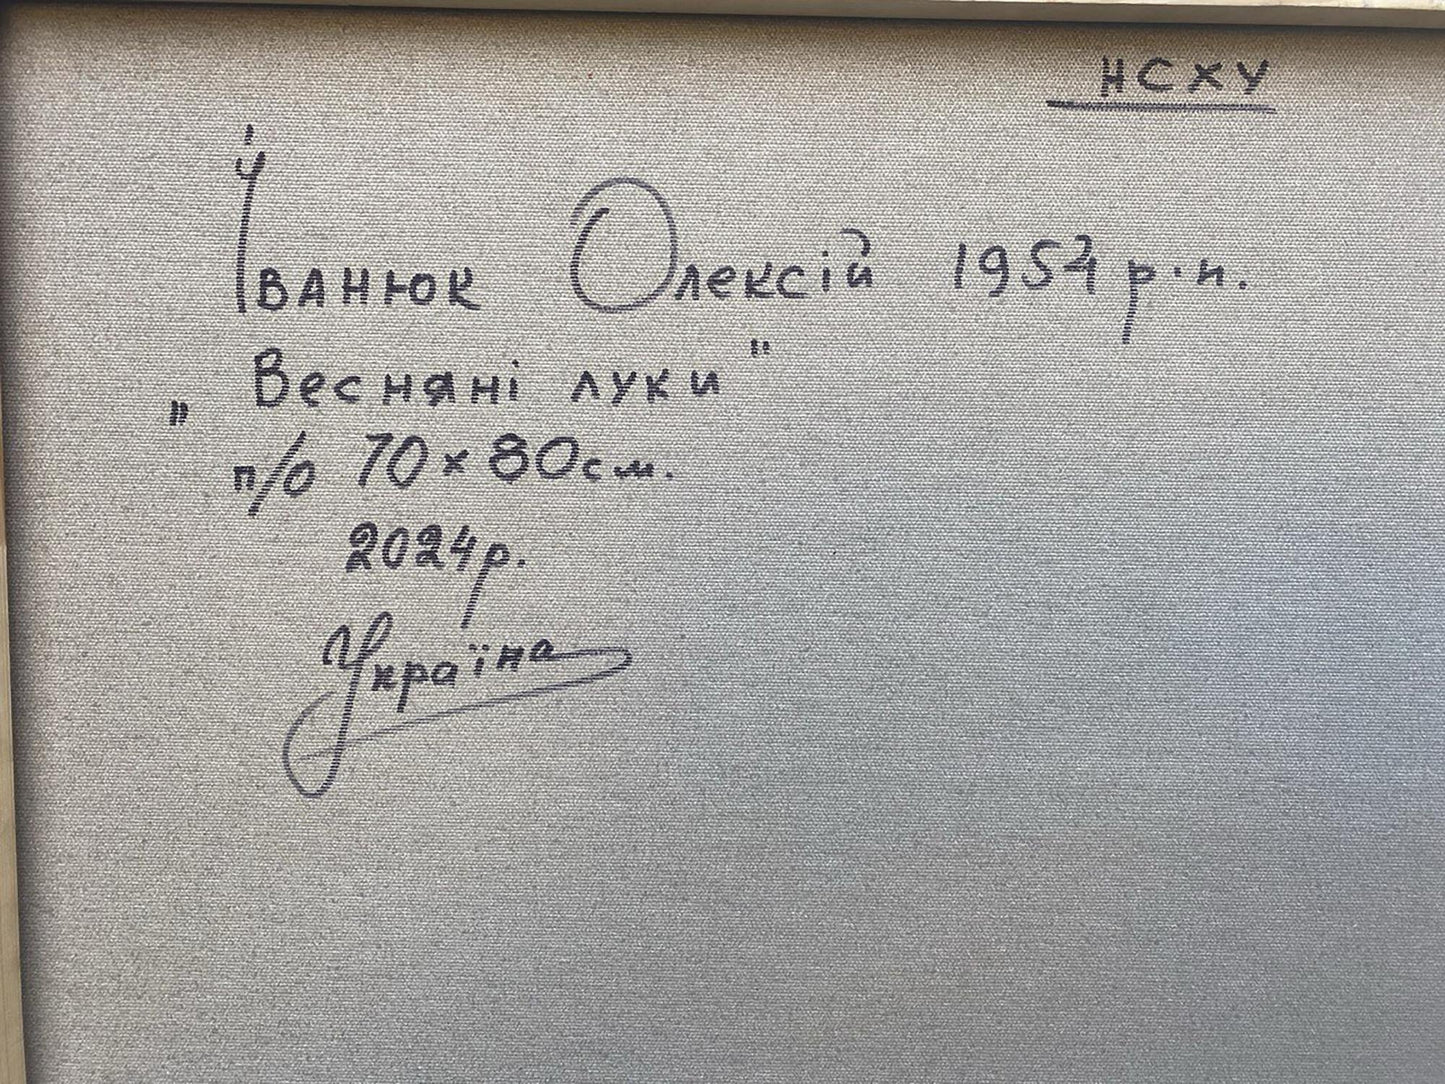 НСХУ
Іванюк Олексій 1954 р.н.
„Весняні луки"
п/о 70×80см.
2024р.
Україна